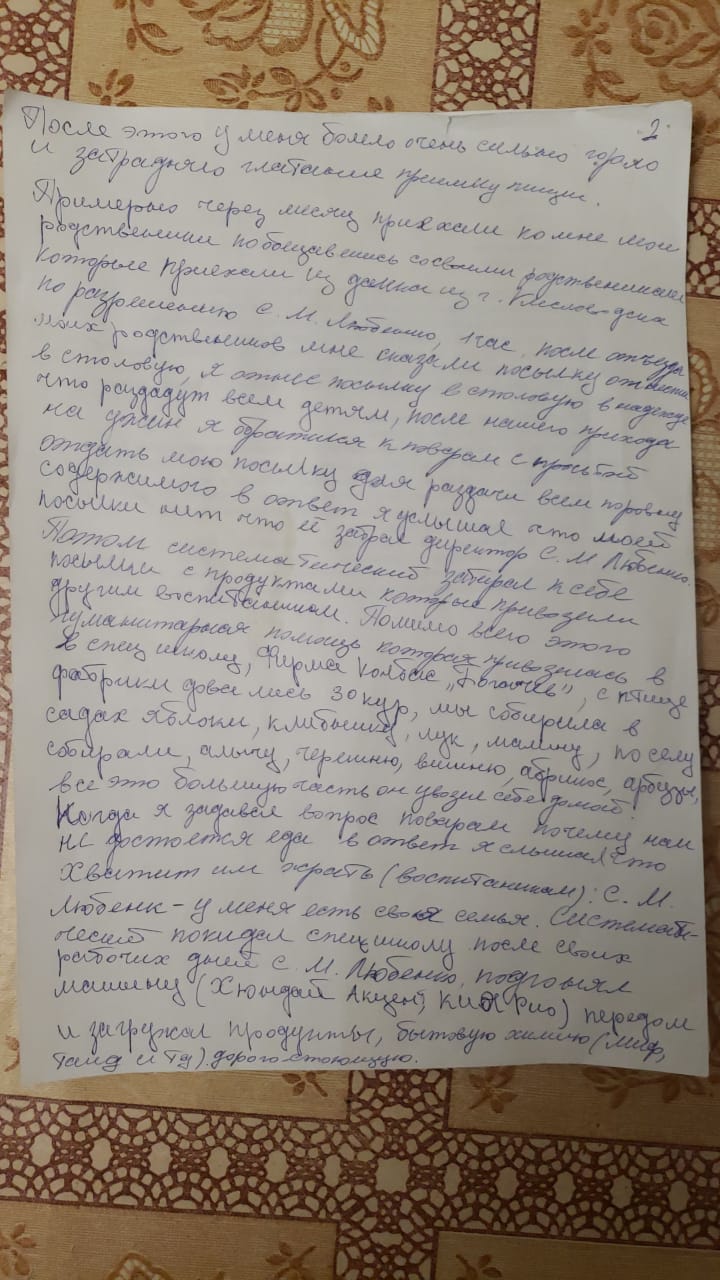 2
После этого у меня болело очень сильно горло
и затрадняло глатание приемку пищи.
Примерно через месяц приехали ко мне мои
родственники пообщавшись со своими родствениками
которые приехали из далика из г. Кисловодска
по разрешению С. М. Любенко, 1 час, после отъезда
моих родственников мне сказали посылку отнести
в столовую, я отнес посылку в столовую в надежде
что раздадут всем детям, после нашего прихода
на ужин я обратился к поварам с просьбой
отдать мою посылку для раздачи всем поровну
содержимого в ответ я услышал что моей
посылки нит что её забрал директор С. М Любенко.
Потом систематический забирал к себе
посылки с продуктами которые привозили
другим воспитанникам. Помимо всего этого
гуманитарная помощь которая привозилась в
в спец школу, Фирма колбас „Богачев", с птице
фабрики довались 30 кур, мы собирила в
садах яблоки, клубышку, лук, малину, по селу
собирали, алычу, черешню, вишню, абрикос, арбузы,
все это большую часть он увозел себе домой.
Когда я задавал вопрос поварам почему нам
не достоется еда в ответ я слышал что
хватит им жрать (воспитаникам): С. М.
Любенк - у меня есть своя семья. Системати-
ческий покидал спецшколу после своих
рабочих дней С. М. Любенко, подгонял
машину (Хюндай Акцент, КИА Рио) передом
и загружал продукты, бытовую химию (миф,
таид и тд) дорого-стоющую.